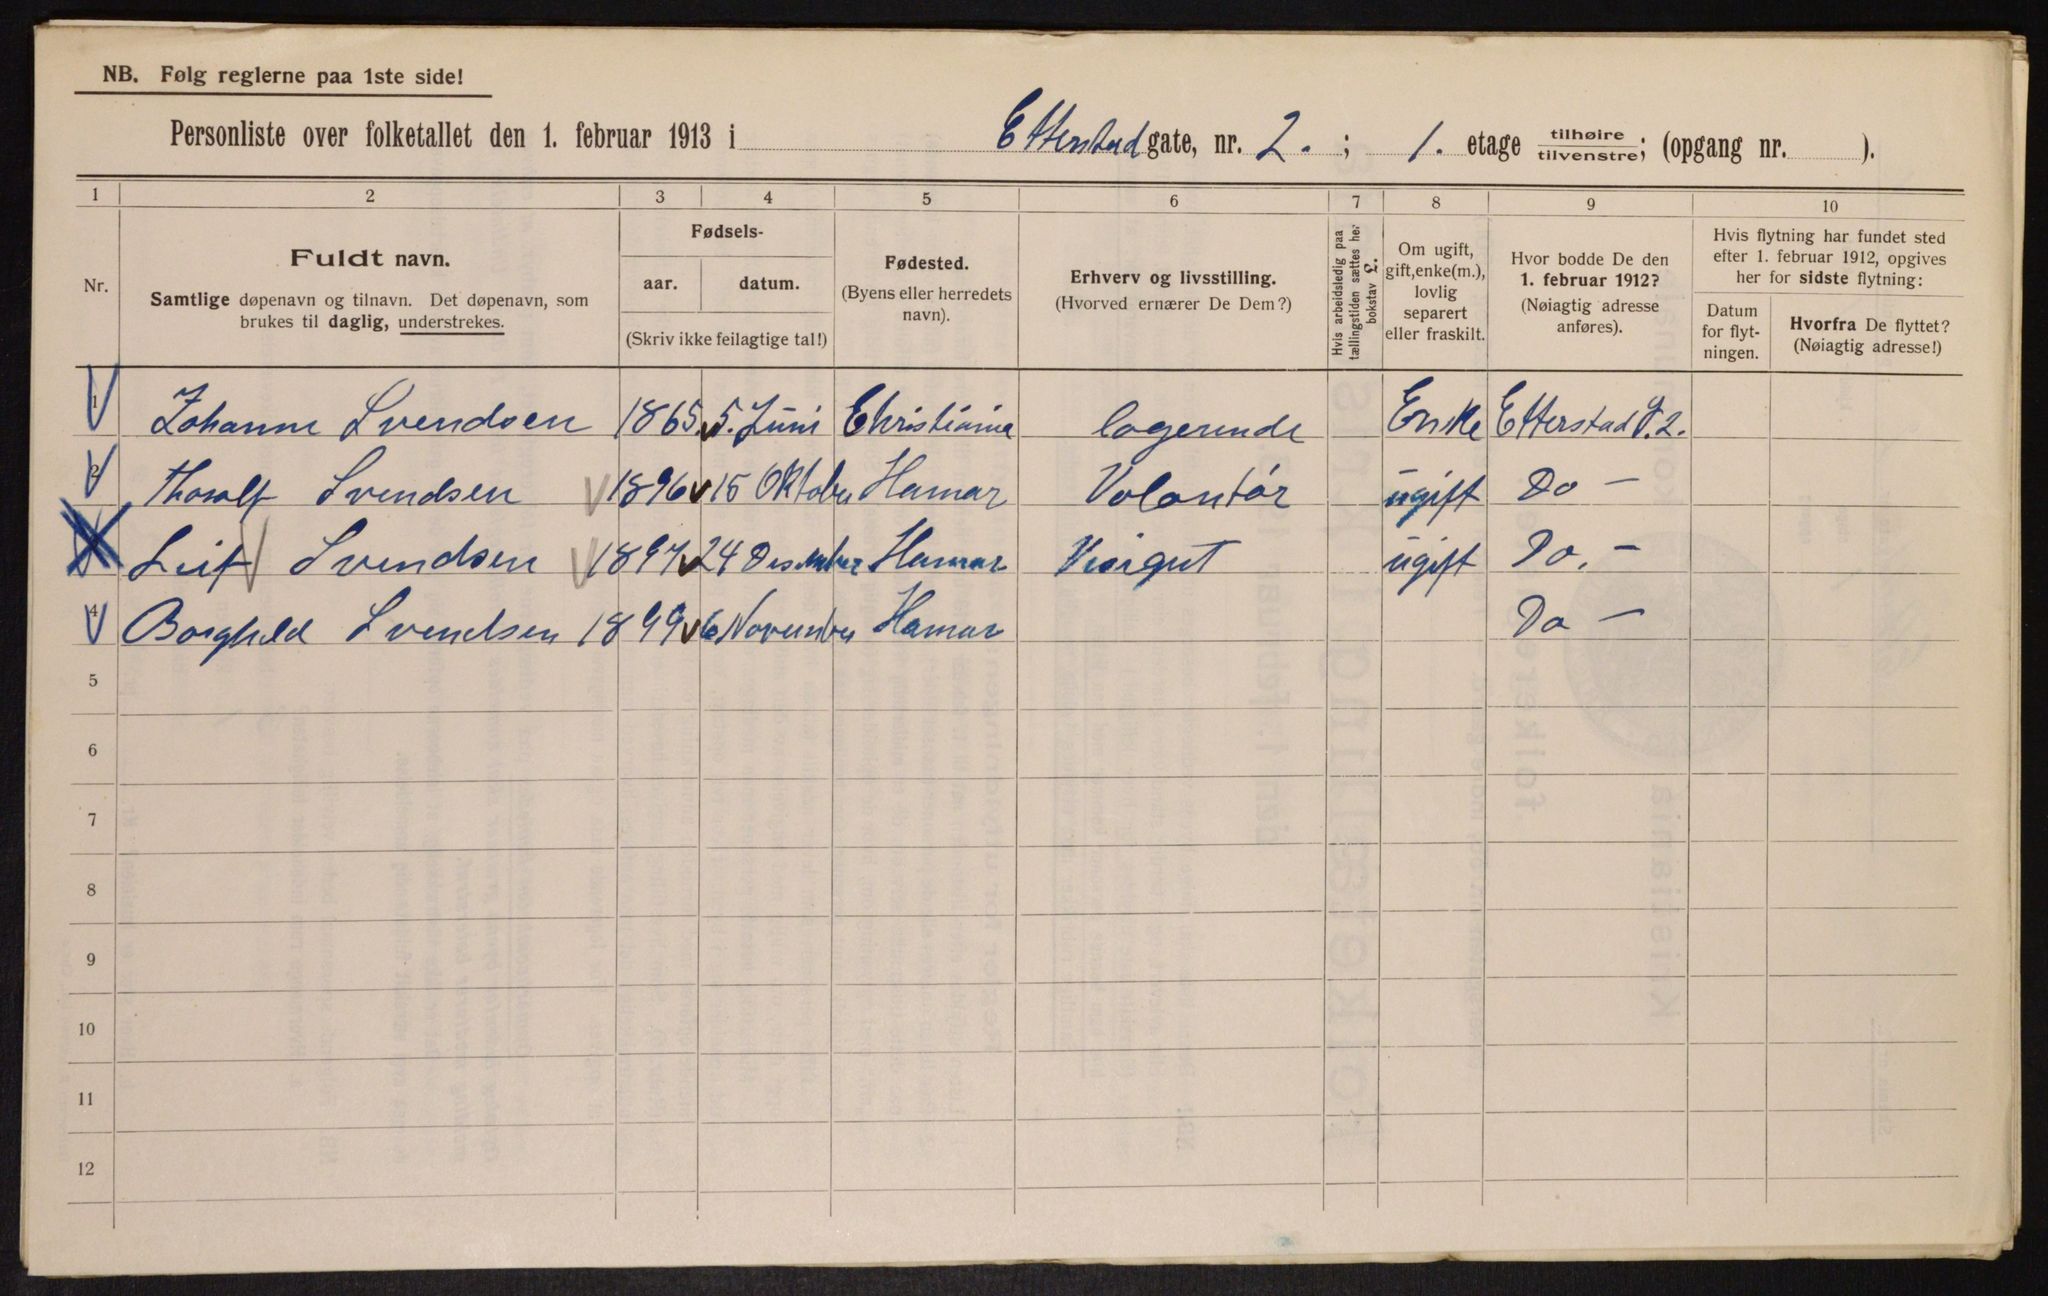 NB. Følg reglerne paa 1ste side!
Personliste over folketallet den 1. februar 1913 i Etterstad gate, nr. 2. ; 1. etage tilhøire tilvenstre; (opgang nr. ).
1 2 3 4 5 6 7 8 9 10
Nr.
Fuldt navn.
Samtlige døpenavn og tilnavn. Det døpenavn, som
brukes til daglig, understrekes.
Fødsels-
aar. datum.
(Skriv ikke feilagtige tal!)
Fødested.
(Byens eller herredets
navn).
Erhverv og livsstilling.
(Hvorved ernærer De Dem?)
Hvis arbeidsledig paa
tællingstiden sættes her
bokstav L.
Om ugift,
gift, enke(m.),
lovlig
separert
eller fraskilt.
Hvor bodde De den
1. februar 1912?
(Nøiagtig adresse
anføres).
Hvis flytning har fundet sted
efter 1. februar 1912, opgives
her for sidste flytning:
Datum
for flyt-
ningen.
Hvorfra De flyttet?
(Nøiagtig adresse!)
1 Johanne Svendsen 1865. 5. Juni Christiania logerende Enke Etterstad g. 2.
2 Thoralf Svendsen 1896 15 Oktober Hamar Volontør ugift Do -
Leif Svendsen 1897 24 Desember Hamar Visergut ugift Do. -
4 Borghild Svendsen 1899 6 November Hamar Do -
5
6
7
8
9
10
11
12